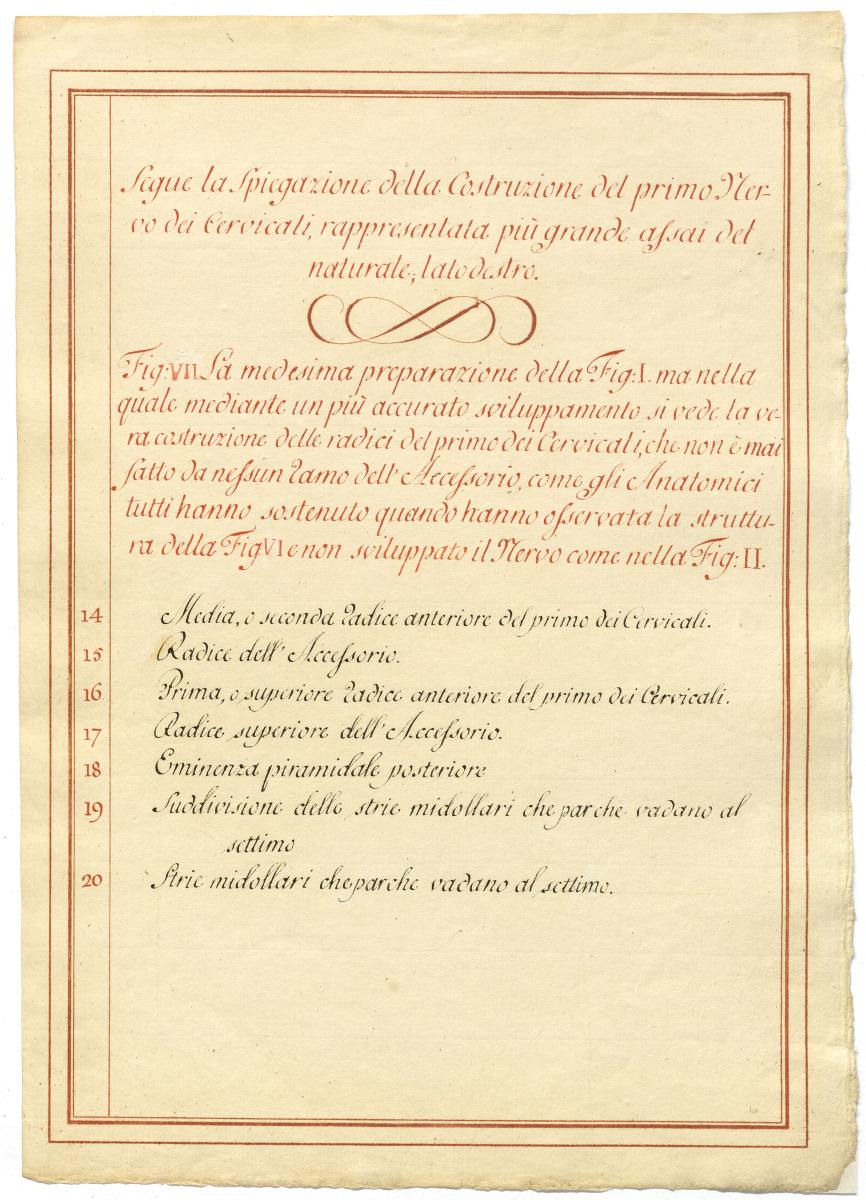 Segue la Spiegazione della Costruzione del primo Ner-
vo dei Cervicali, rappresentata più grande assai del
naturale, lato destro.
Fig: VII. La medesima preparazione della Fig: I. ma nella
quale mediante un più accurato sviluppamento si vede la ve-
ra costruzione delle radici del primo dei Cervicali, che non è mai
fatto da nessun Ramo dell' Accessorio, come gli Anatomici
tutti hanno sostenuto quando hanno osservata la struttu-
ra della Fig VI e non sviluppato il Nervo come nella Fig: II.
14 Media, o seconda Radice anteriore del primo dei Cervicali.
15 Radice dell' Accessorio.
16 Prima, o superiore Radice anteriore del primo dei Cervicali.
17 Radice superiore dell' Accessorio.
18 Eminenza piramidale posteriore
19 Suddivisione delle strie midollari che par che vadano al
settimo
20 Strie midollari che par che vadano al settimo.